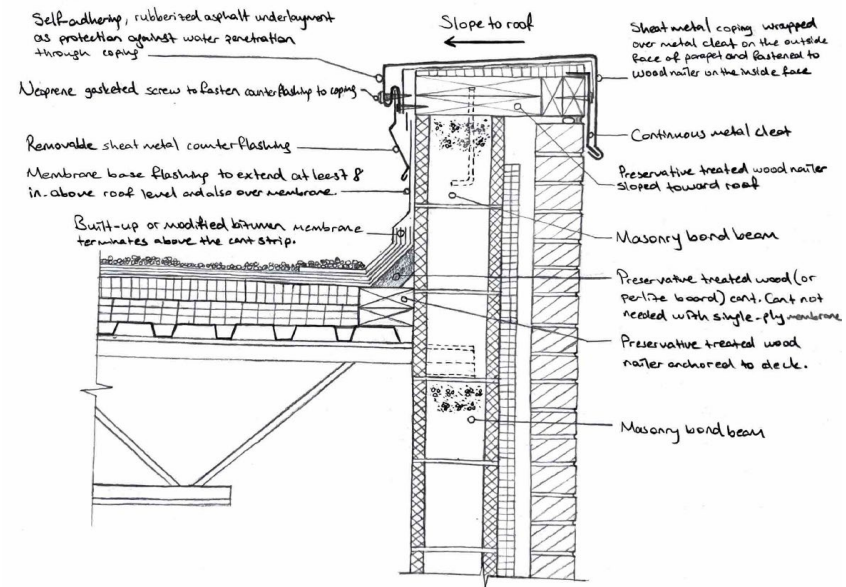 Self-adhering, rubberized asphalt underlayment
as protection against water penetration
through coping
Neoprene gasketed screw to fasten counterflashing to coping
Removable sheet metal counterflashing
Membrane base flashing to extend at least 8
in. above roof level and also over membrane.
Built-up or modified bitumen membrane
terminates above the cant strip.
Slope to roof
Sheet metal coping wrapped
over metal cleat on the outside
face of parapet and fastened to
wood nailer on the inside face
Continuous metal cleat
Preservative treated wood nailer
sloped toward roof
Masonry bond beam
Preservative treated wood (or
perlite board) cant. Cant not
needed with single-ply membrane
Preservative treated wood
nailer anchored to deck.
Masonry bond beam